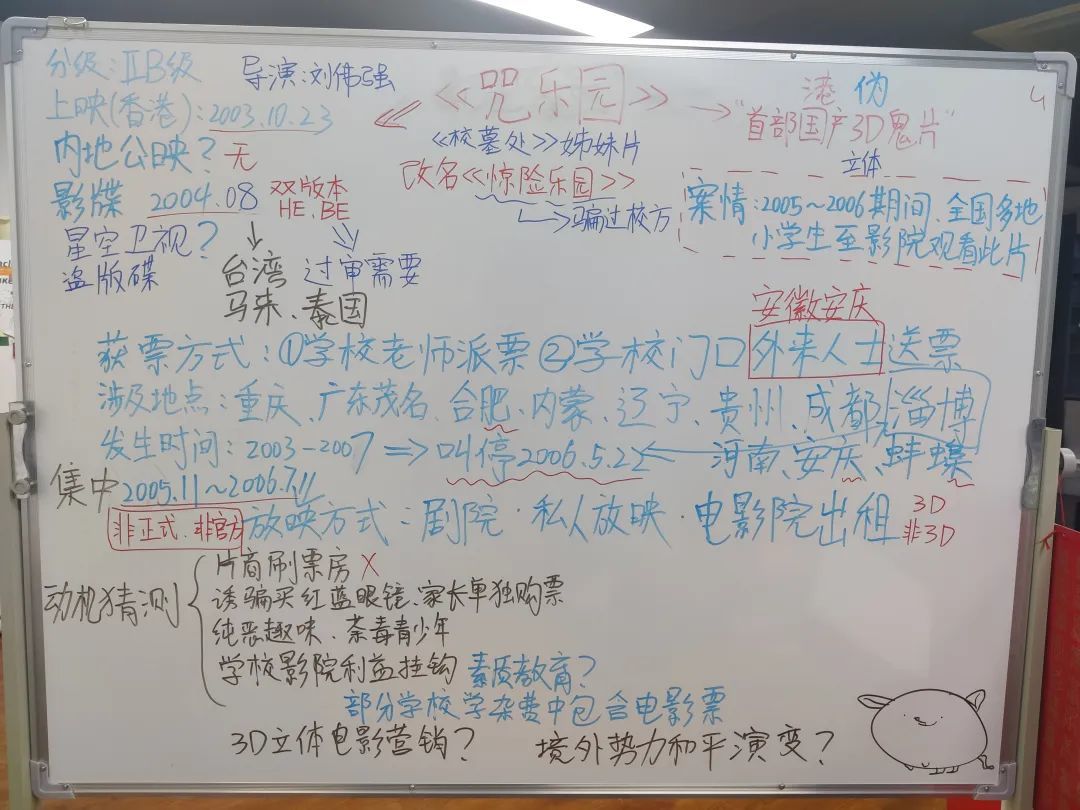 分级:ⅡB级
导演:刘伟强
上映(香港):2003.10.23
内地公映?无
影牒 2004.08
双版本
HE、BE
星空卫视?
盗版碟
台湾
马来、泰国
过审需要
《咒乐园》
《校墓处》姊妹片
改名《惊险乐园》
骗过校方
港 伪
"首部国产3D鬼片"
立体
案情:2005~2006期间、全国多地
小学生至影院观看此片
安徽安庆
获票方式:①学校老师派票②学校门口外来人士送票
涉及地点:重庆、广东茂名、合肥、内蒙、辽宁、贵州、成都、淄博
河南、安庆、蚌蠓
发生时间:2003-2007⇒叫停2006.5.22
集中2005.11~2006.7.11
非正式、非官方
放映方式:剧院·私人放映·电影院出租
3D
非3D
动机猜测
片商刷票房×
诱骗买红蓝眼镜、家长单独购票
纯恶趣味、荼毒青少年
学校影院利益挂钩 素质教育?
部分学校学杂费中包含电影票
3D立体电影营销? 境外势力和平演变?